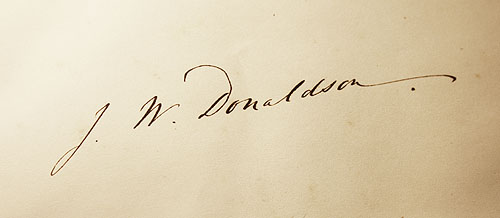 J. W. Donaldson.